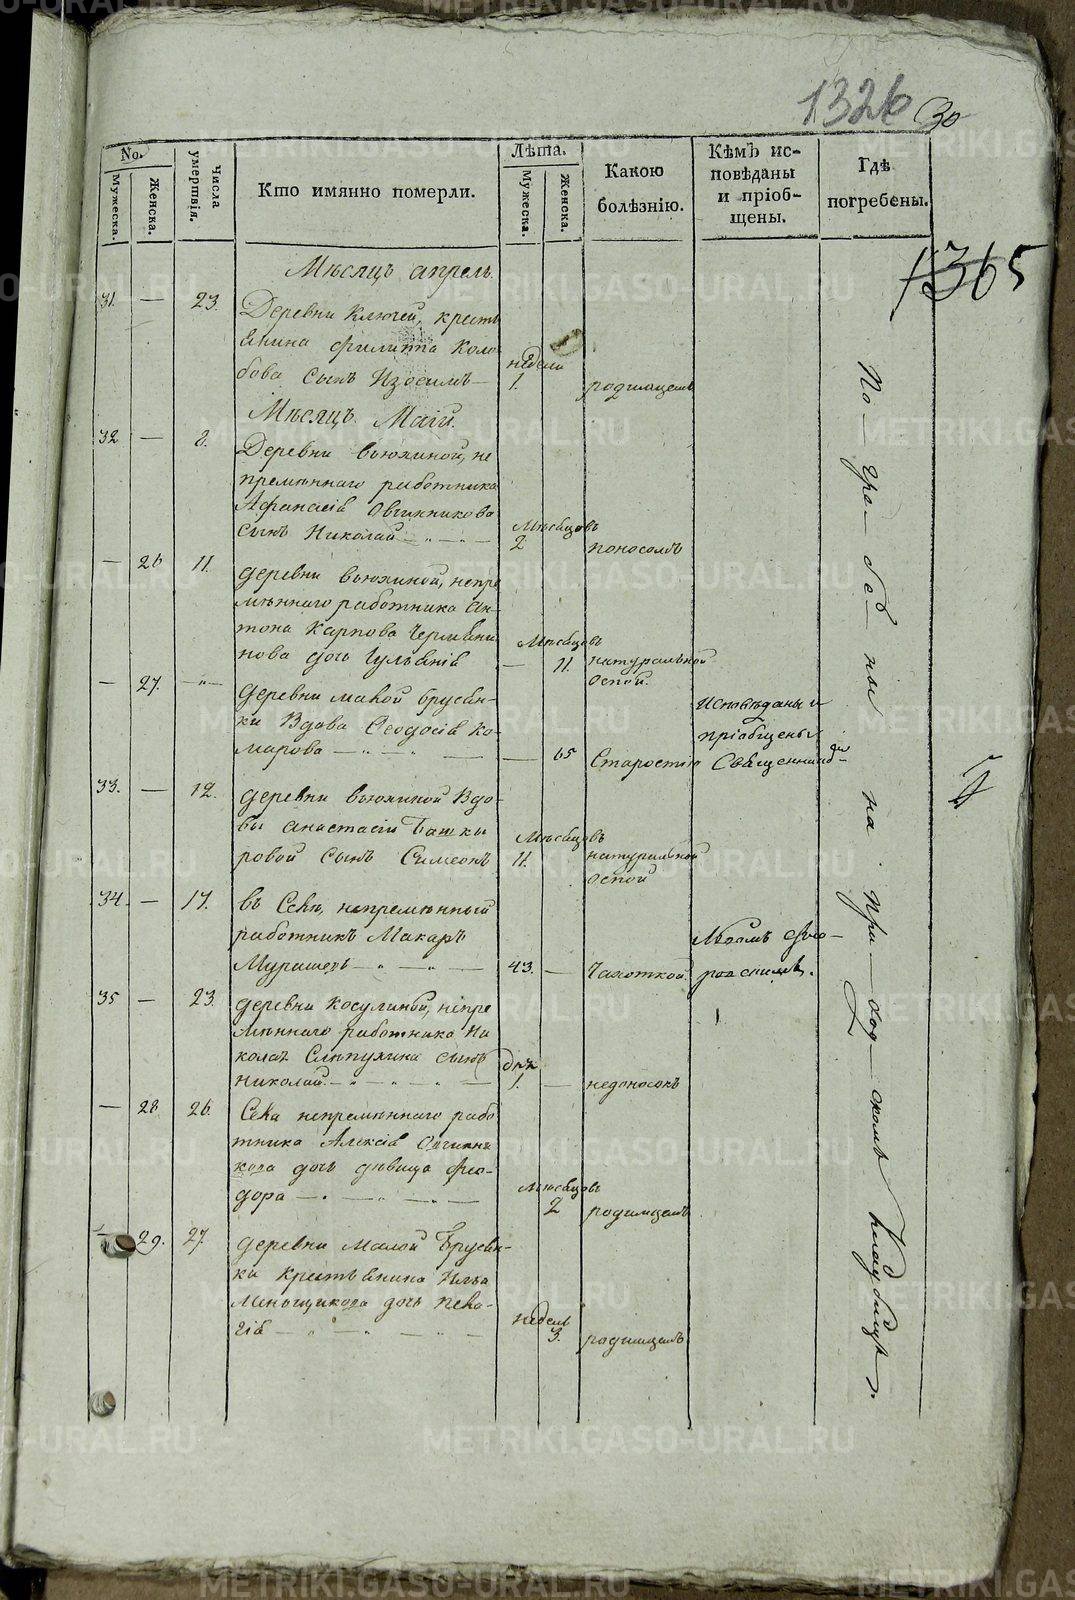 1326 30
No.
Мужеска.
Женска.
Числа умертвія.
Кто имянно померли.
Лѣта.
Мужеска.
Женска.
Какою болѣзнію.
Кѣмъ исповѣданы и пріобщены.
Гдѣ погребены.
1365
Мѣсяцъ апрель.
31. — 23. Деревни Ключей, кресть
янина Филиппа Коло
бова сынъ Изосимъ — недели 1. родимцемъ
Мѣсяцъ Маій.
32 — 8. Деревни вьюхиной, не
премѣннаго работника
Афанасія Овчинникова
сынъ Николай — „ — „ — Мѣсяцовъ 2 поносомъ
— 26 11. деревни вьюхиной, непре
мѣннаго работника Ан-
тона Карпова
дочь Гульянія — Мѣсяцовъ 11. натуральной
оспой.
— 27. „ деревни малой брусян-
ки Вдова Ѳеодосія Ко-
марова — „ — „ — 65 Старостію
Исповѣданы и
пріобщены
Священником
33. — 12. деревни вьюхиной Вдо-
вы анастасіи Башки
ровой сынъ Симеонъ Мѣсяцовъ 11. натуральной
оспой
34. — 17. въ Селѣ, непремѣнный
работникъ Макаръ
— „ — „ — 43. — Чахоткой
35 — 23. деревни Косулиной, непре
мѣннаго работника Ни
колая Слепухина сынъ
николай — „ — „ — „ — днь 1. — недоносокъ
— 28 26. Села непремѣннаго рабо
тника Алексія Овчинни
кова дочь дѣвица Фео-
дора — „ — „ — „ — Мѣсяцовъ 2 родимцемъ
— 29. 27. деревни Малой Брусян-
ки Крестьянина Ильи
Меньщикова дочь Пела-
гія — „ — „ — недель 3. родимцемъ
По — гре — бе — ны на при — ход — скомъ Кладбищѣ.
METRIKI.GASO-URAL.RU